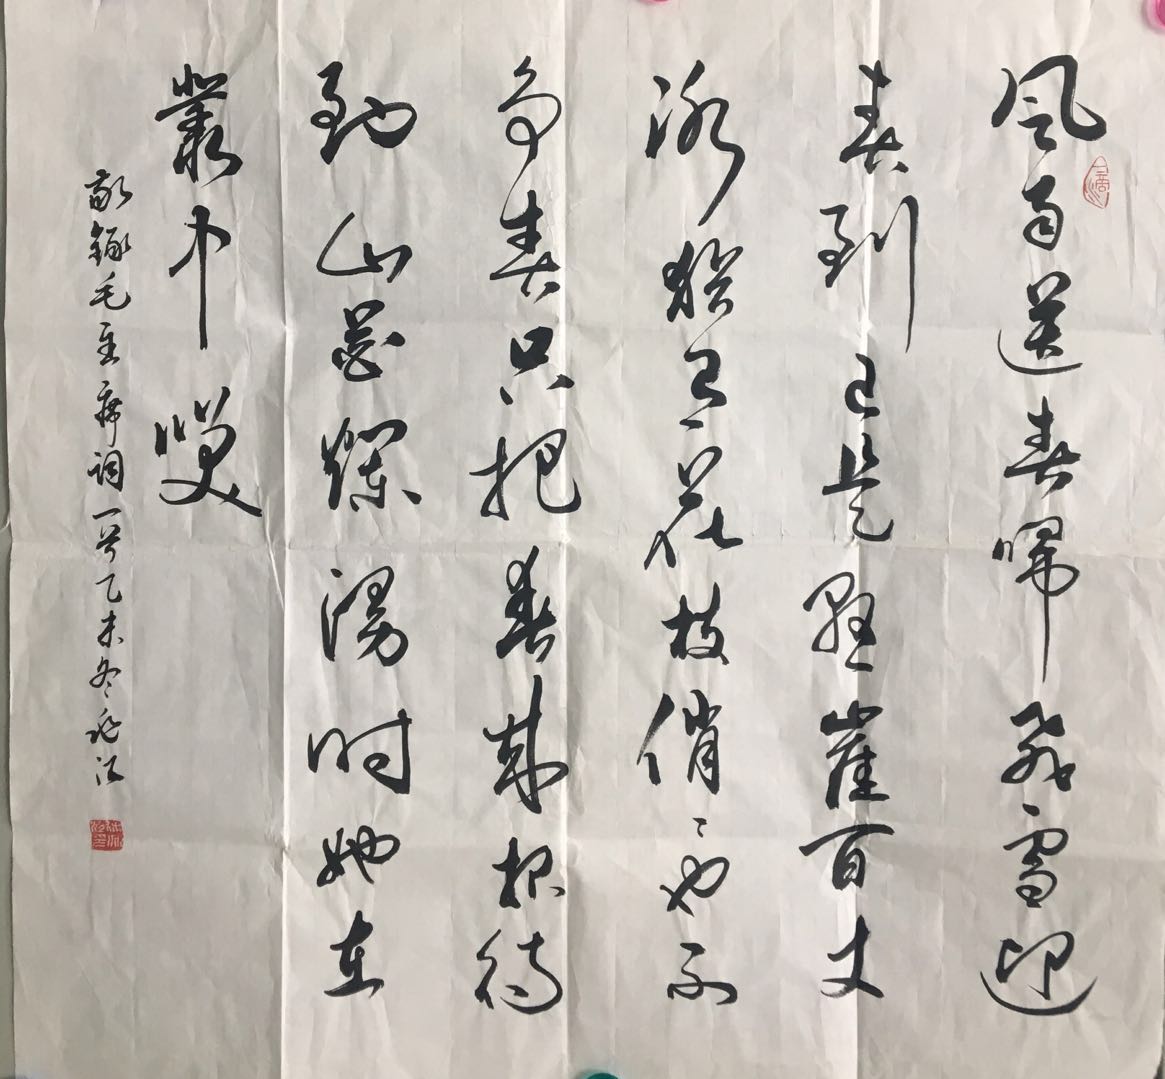 风雨送春歸飛雪迎
春到已是懸崖百丈
冰猶有花枝俏〻也不
争春只把春來报待
到山花爛漫时她在
叢中咲
敬錄毛主席词一首乙未冬